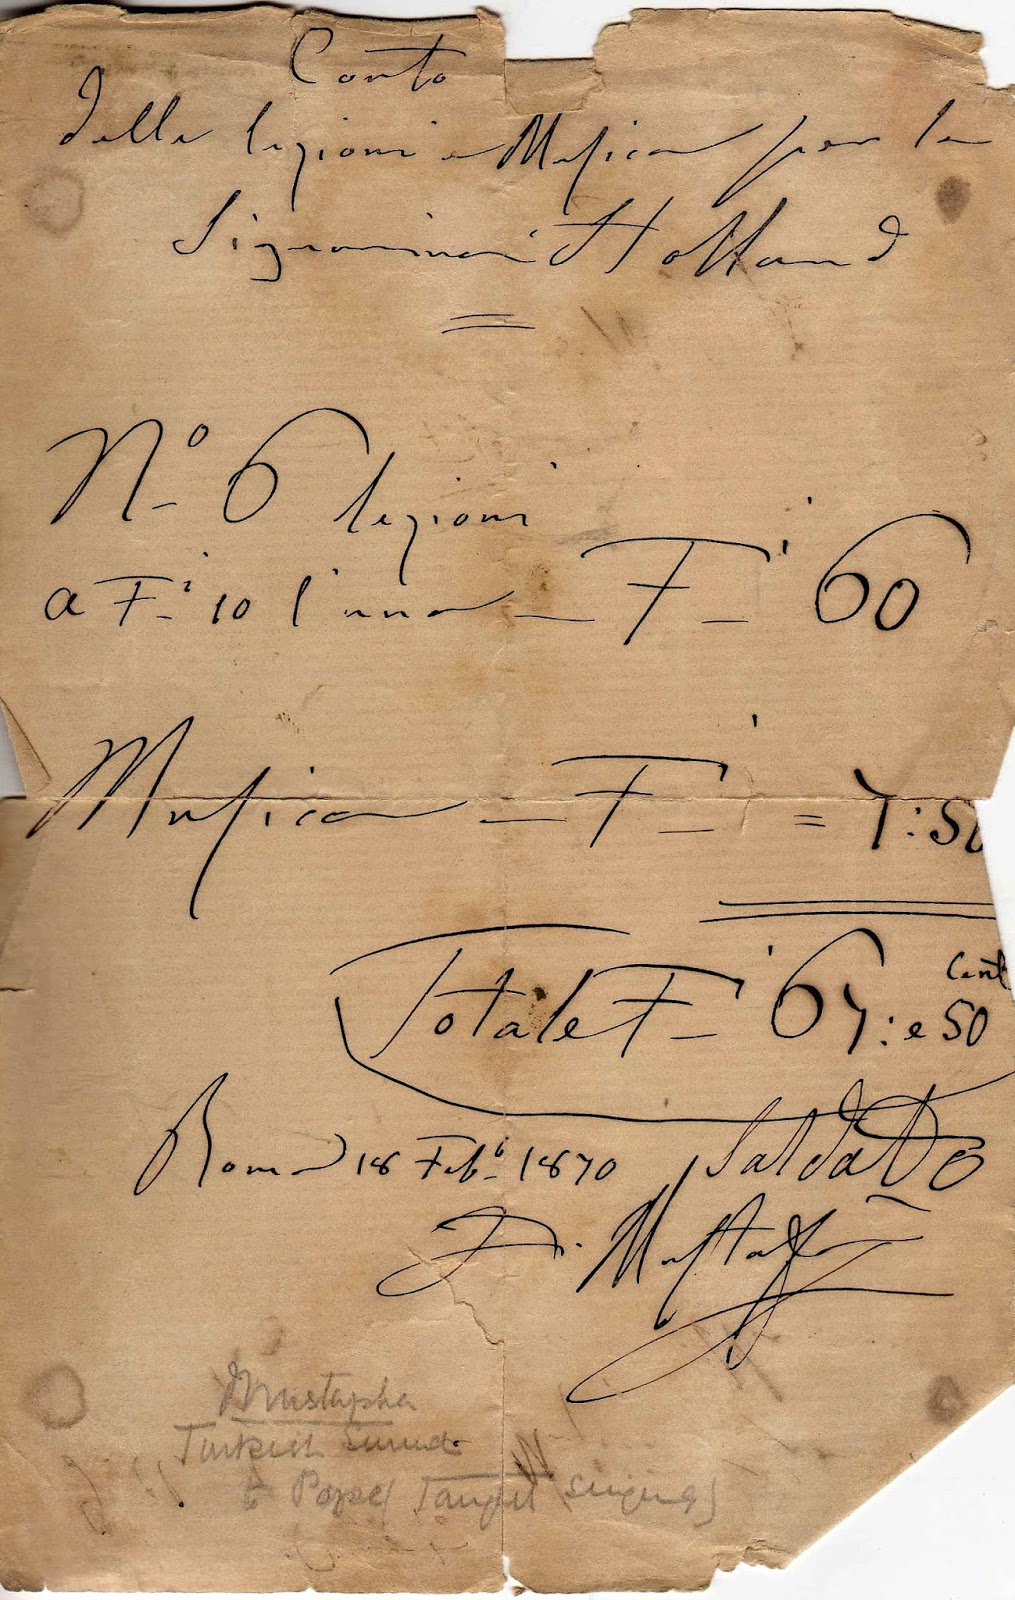 Conto
delle lezioni e Musica per la
Signorina Holland
Nº 6 lezioni
a Fⁱ 10 l'una — Fⁱ 60
Musica — Fⁱ = 7:50
Totale Fⁱ 67: e 50 Cent
Roma 18 Febº 1870 Saldato
D. Mustafà
Mustapha
Turkish
to Pope (Taught singing)